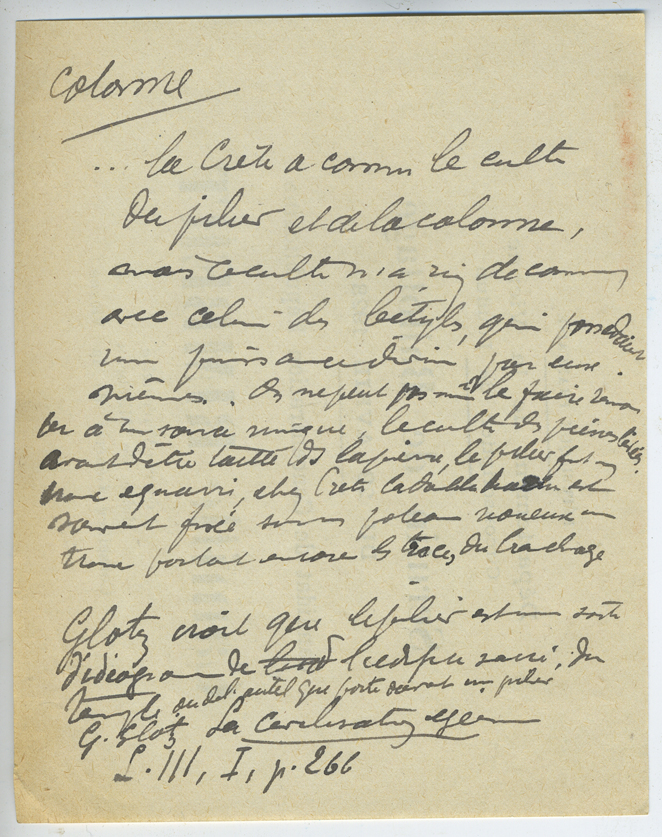 colonne
... la Crète a connu le culte
du pilier et de la colonne,
mais ce culte n'a rien de commun
avec celui des bétyles, qui possédaient
une puissance divine par eux-
mêmes. On ne peut pas même le faire remon
ter à une source unique, le culte des pierres
avant d'être taillé ds la pierre, le pilier fut un
tronc équarri, en Crète la double hache est
souvent fixée sur un poteau noueux un
tronc portant encore les traces du branchage
Glotz croit que le pilier est une sorte
d'idéogramme de l'édifice sacré, du
temple ou de l'autel que porte souvent un pilier
G. Glotz La Civilisation égéenne
L. III, I, p. 266